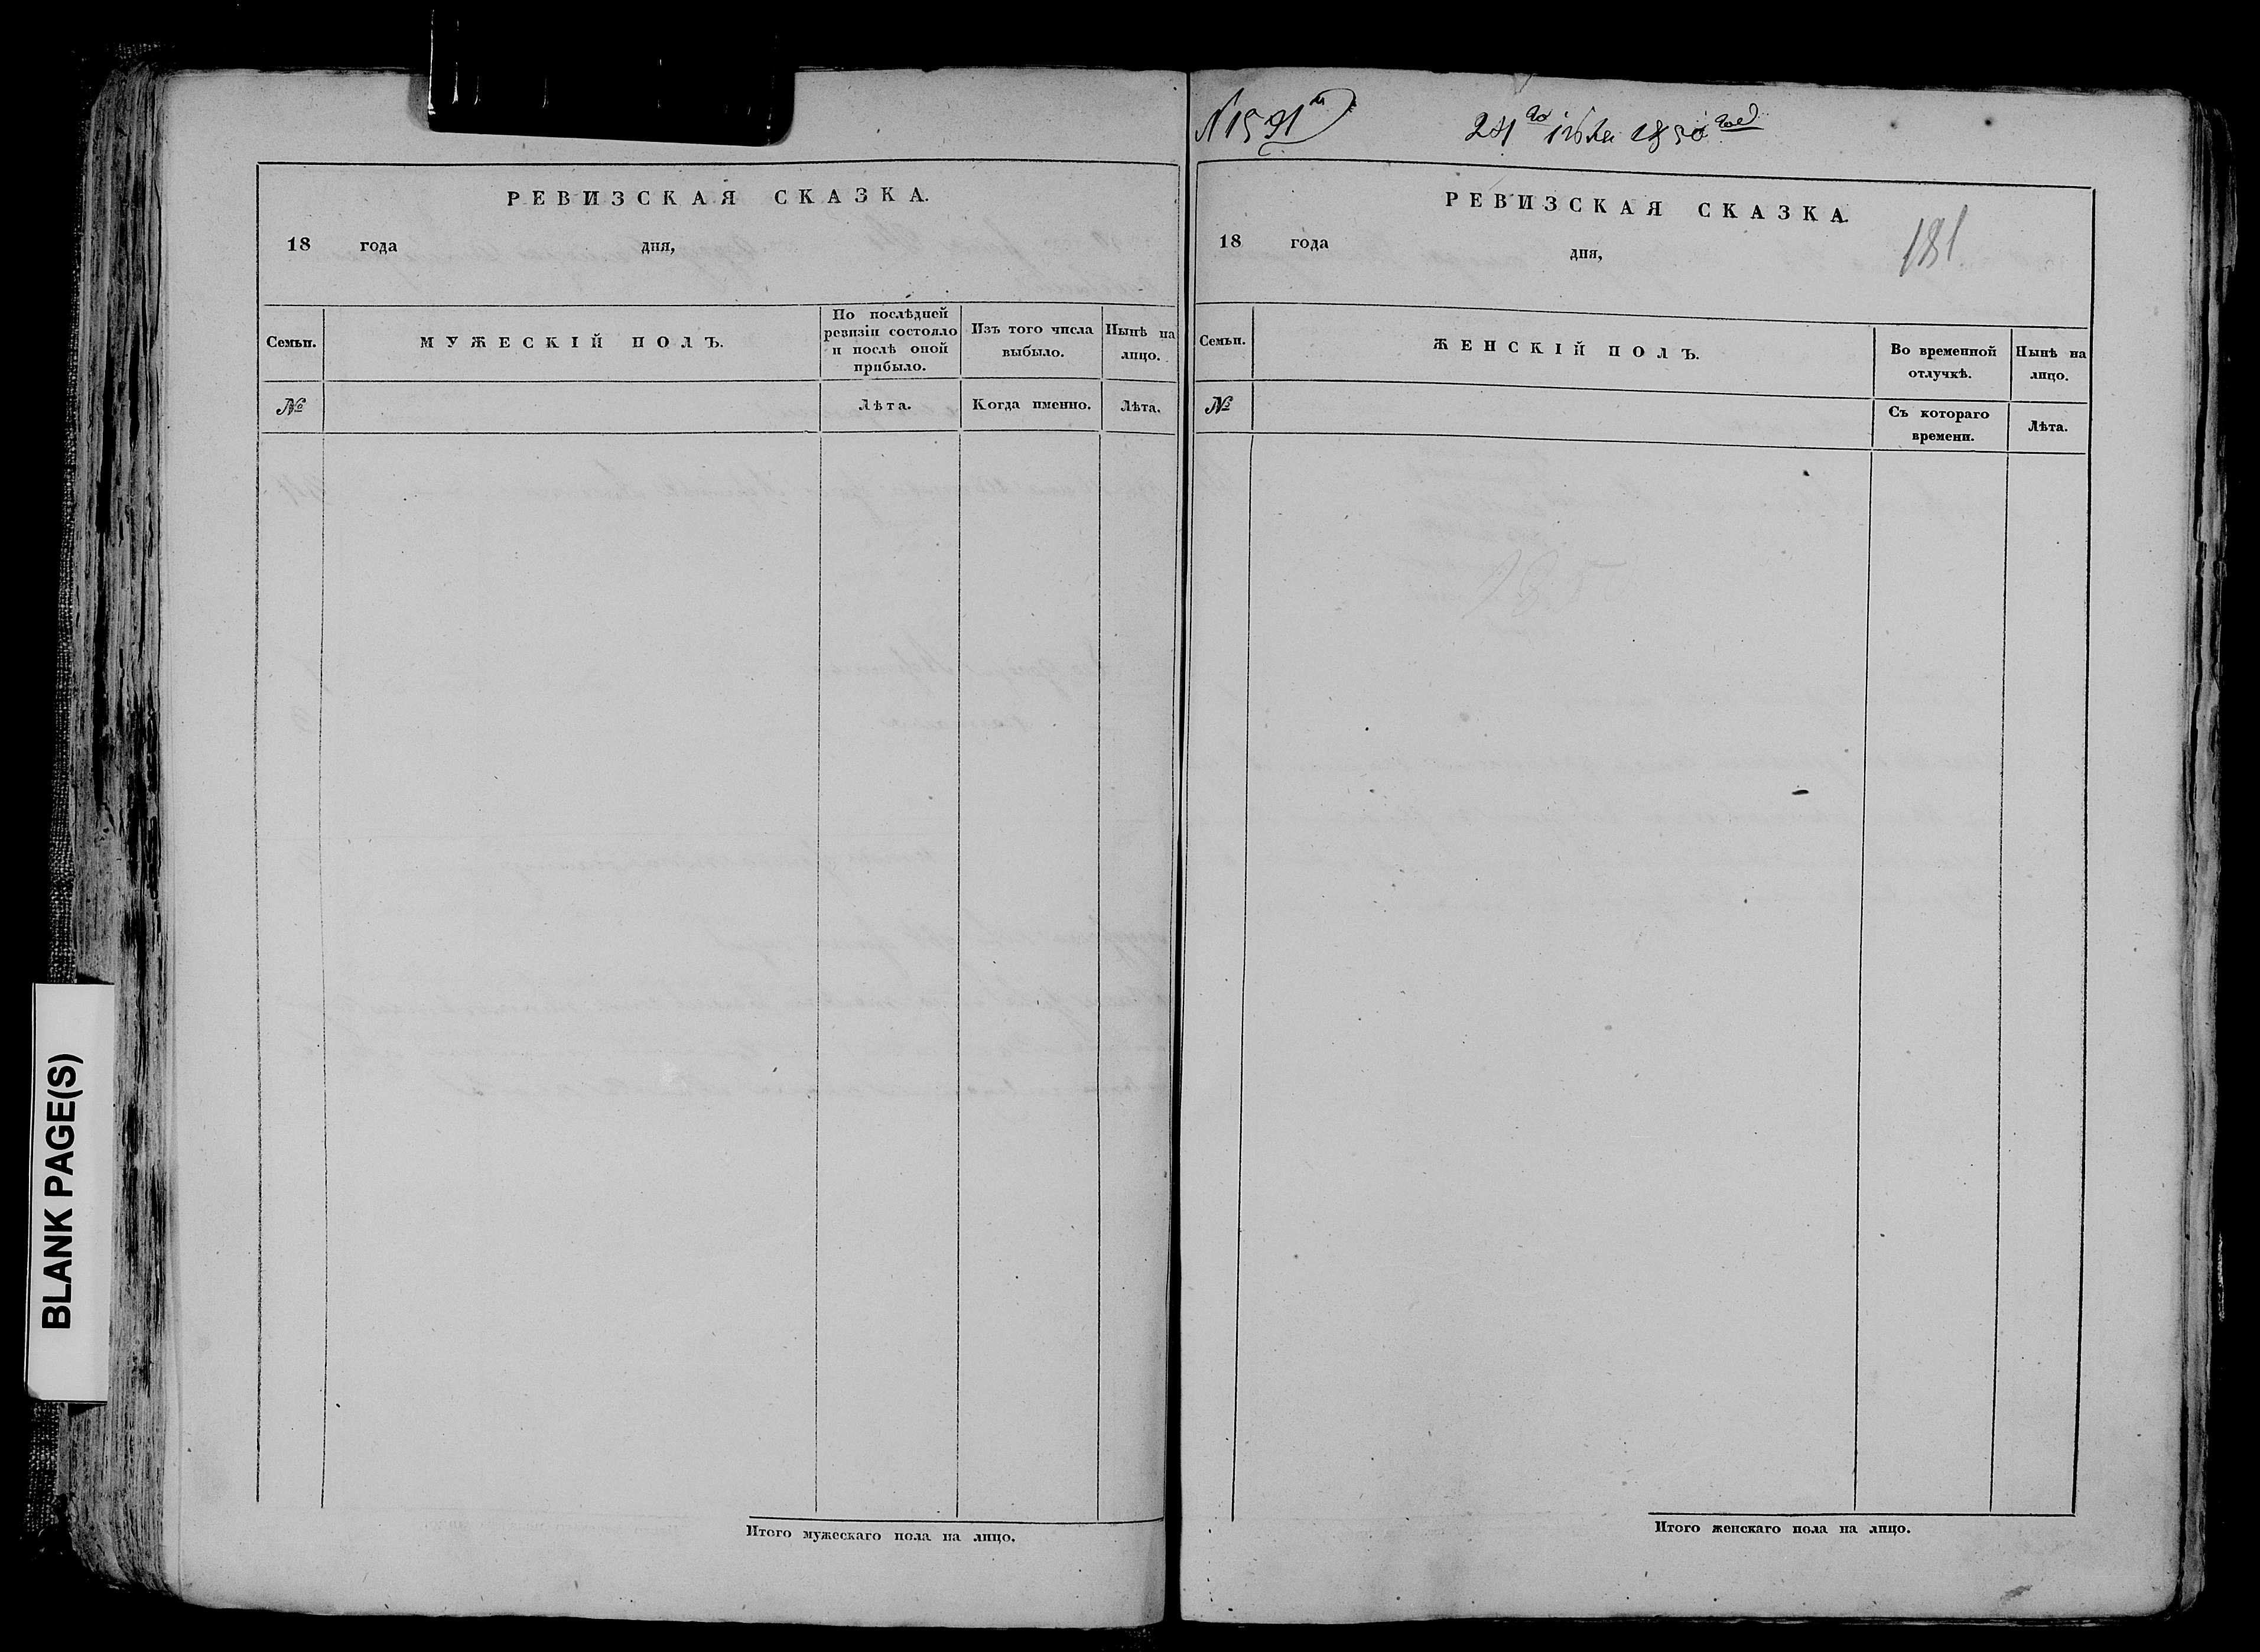 РЕВИЗСКАЯ СКАЗКА.
18 года дня,
Семьи. МУЖЕСКІЙ ПОЛЪ. По послѣдней ревизіи состояло и послѣ оной прибыло. Изъ того числа выбыло. Нынѣ на лицо.
№ Лѣта. Когда именно. Лѣта.
Итого мужескаго пола на лицо.
№ 1591
1850
РЕВИЗСКАЯ СКАЗКА.
181
18 года дня,
Семьи. ЖЕНСКІЙ ПОЛЪ. Во временной отлучкѣ. Нынѣ на лицо.
№ Съ котораго времени. Лѣта.
Итого женскаго пола на лицо.
BLANK PAGE(S)